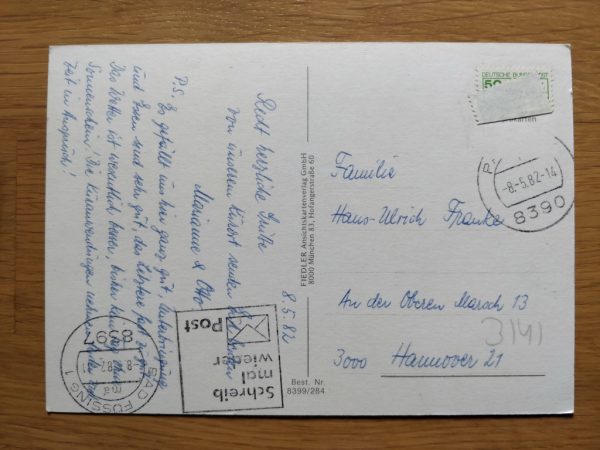 8.5.82
Recht herzliche Grüße
von unserem Kurort senden
Marianne & Otto
P.S. Es gefällt uns hier ganz gut, Unterbringung
und Essen sind sehr gut, das letztere fast zu gut.
Das Wetter ist wesentlich besser, bisher
Sonnenschein. Die Kuranwendungen nehmen
Zeit in Anspruch!
Schreib
mal
wieder
Post
8397
BAD FÜSSING 1
FIEDLER Ansichtskartenverlag GmbH
8000 München 83, Hofangerstraße 60
Best. Nr.
8399/284
DEUTSCHE BUNDESPOST
50
-8.-5.82-14
8390
Familie
Hans-Ulrich Franke
An der Oberen Marsch 13
3141
3000 Hannover 21